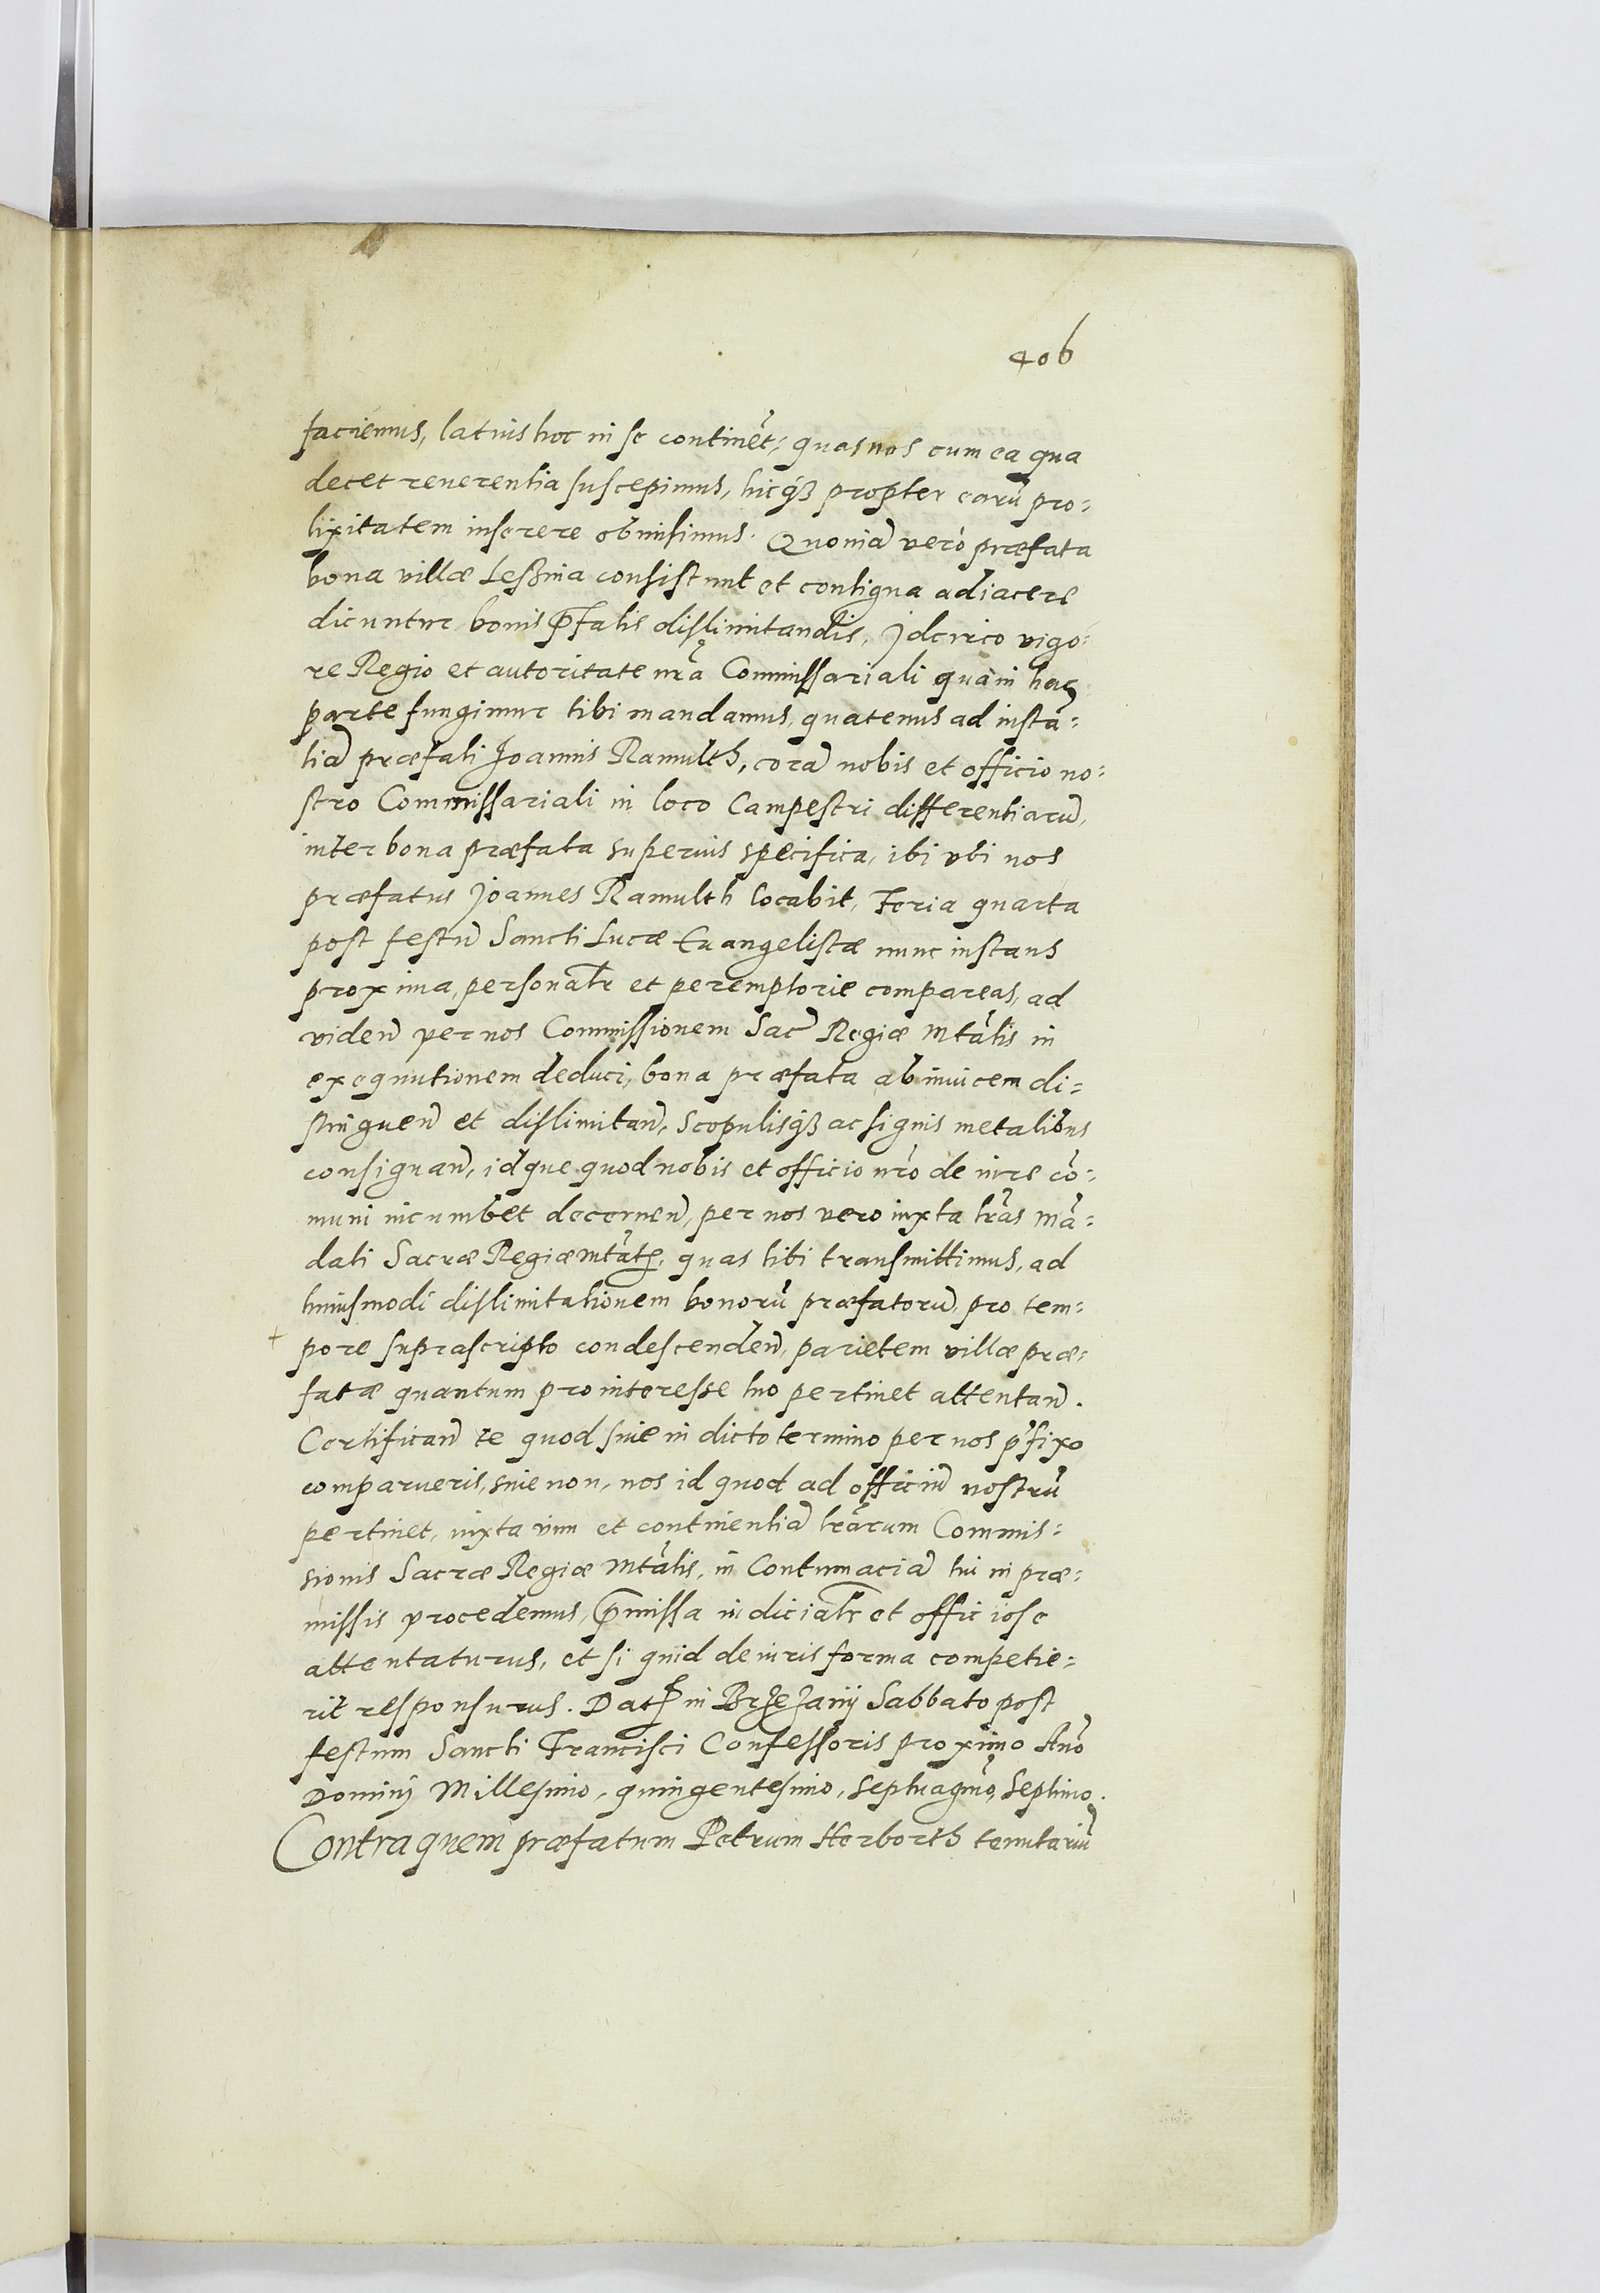 406
faciemus, latius hoc in se continēt, quas nos cum ea qua
decet reuerentia suscepimus, hicqȝ propter earū pro=
lixitatem inserere obmisimus. Quoniā verò præfata
bona villæ Leßzina consistunt et contigua adiacere
dicuntur bonis p̄fatis dislimitandis, Jdcirco vigo=
re Regio et autoritate nr̄a Commissariali qua in hac
parte fungimur tibi mandamus, quatenus ad instā=
tiā præfati Joannis Ramulth, corā nobis et officio no=
stro Commissariali in loco Campestri differentiarū,
inter bona præfata superius specifica, ibi vbi nos
præfatus Joannes Ramulth locabit, Feria quarta
post festū Sancti Lucæ Euangelistæ nunc instans
proxima, personalr̄ et peremptorie compareas, ad
viden̄ per nos Commissionem Sac̄ Regiæ Mtātis in
exequutionem deduci, bona præfata ab inuicem di=
stinguen̄ et dislimitan̄, scopulisqȝ ac signis metalibus
consignan̄, idque quod nobis et officio nr̄o de iure cō=
muni incumbet decernen̄, per nos vero iuxta lr̄as mā=
dati Sacræ Regiæ Mtātȩ, quas tibi transmittimus, ad
huiusmodi dislimitationem bonorū præfatorū, pro tem=
+ pore suprascripto condescenden̄, parietem villæ præ=
fatæ quantum pro interesse tuo pertinet attentan̄.
Certifican̄ te quod siue in dicto termino per nos p̄fixo
comparueris, siue non, nos id quod ad officiū nostrū
pertinet, iuxta vim et continentiā lr̄arum Commis=
sionis Sacræ Regiæ Mtātis, in Contumaciā tui in præ=
missis procedemus, p̄missa iudicialr̄ et officiose
attentaturus, et si quid de iuris forma competie=
rit responsurus. Datȩ in Brzezanij Sabbato post
festum Sancti Francisci Confessoris proximo Anō
Dominj Millesimo, quingentesimo, septuagm̄o, septimo.
Contra quem præfatum Petrum Herborth tenutariū